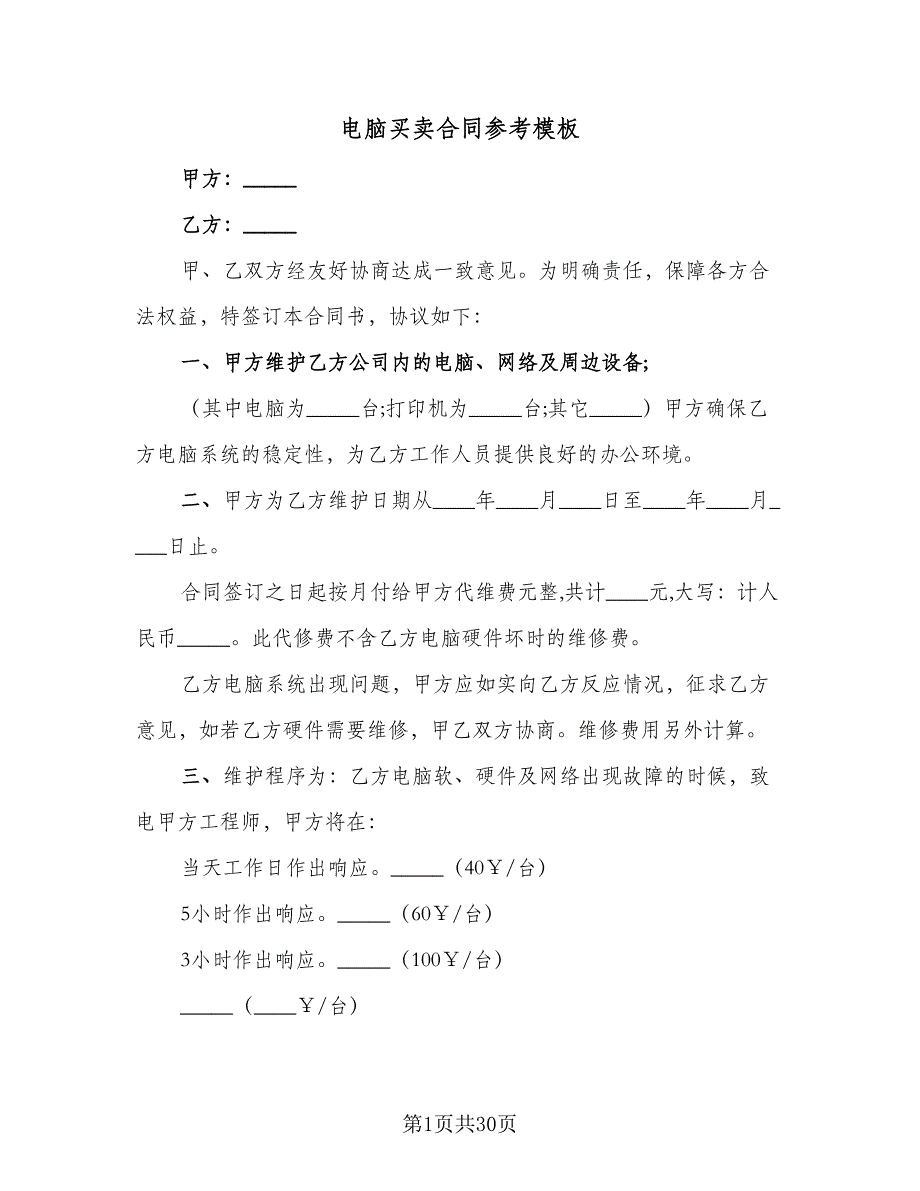 电脑买卖合同参考模板
甲方：_____
乙方：_____
甲、乙双方经友好协商达成一致意见。为明确责任，保障各方合
法权益，特签订本合同书，协议如下：
一、甲方维护乙方公司内的电脑、网络及周边设备;
（其中电脑为_____台;打印机为_____台;其它_____）甲方确保乙
方电脑系统的稳定性，为乙方工作人员提供良好的办公环境。
二、甲方为乙方维护日期从____年____月____日至____年____月_
___日止。
合同签订之日起按月付给甲方代维费元整,共计____元,大写：计人
民币_____。此代修费不含乙方电脑硬件坏时的维修费。
乙方电脑系统出现问题，甲方应如实向乙方反应情况，征求乙方
意见，如若乙方硬件需要维修，甲乙双方协商。维修费用另外计算。
三、维护程序为：乙方电脑软、硬件及网络出现故障的时候，致
电甲方工程师，甲方将在：
当天工作日作出响应。_____（40￥/台）
5小时作出响应。_____（60￥/台）
3小时作出响应。_____（100￥/台）
_____（____￥/台）
第1页共30页